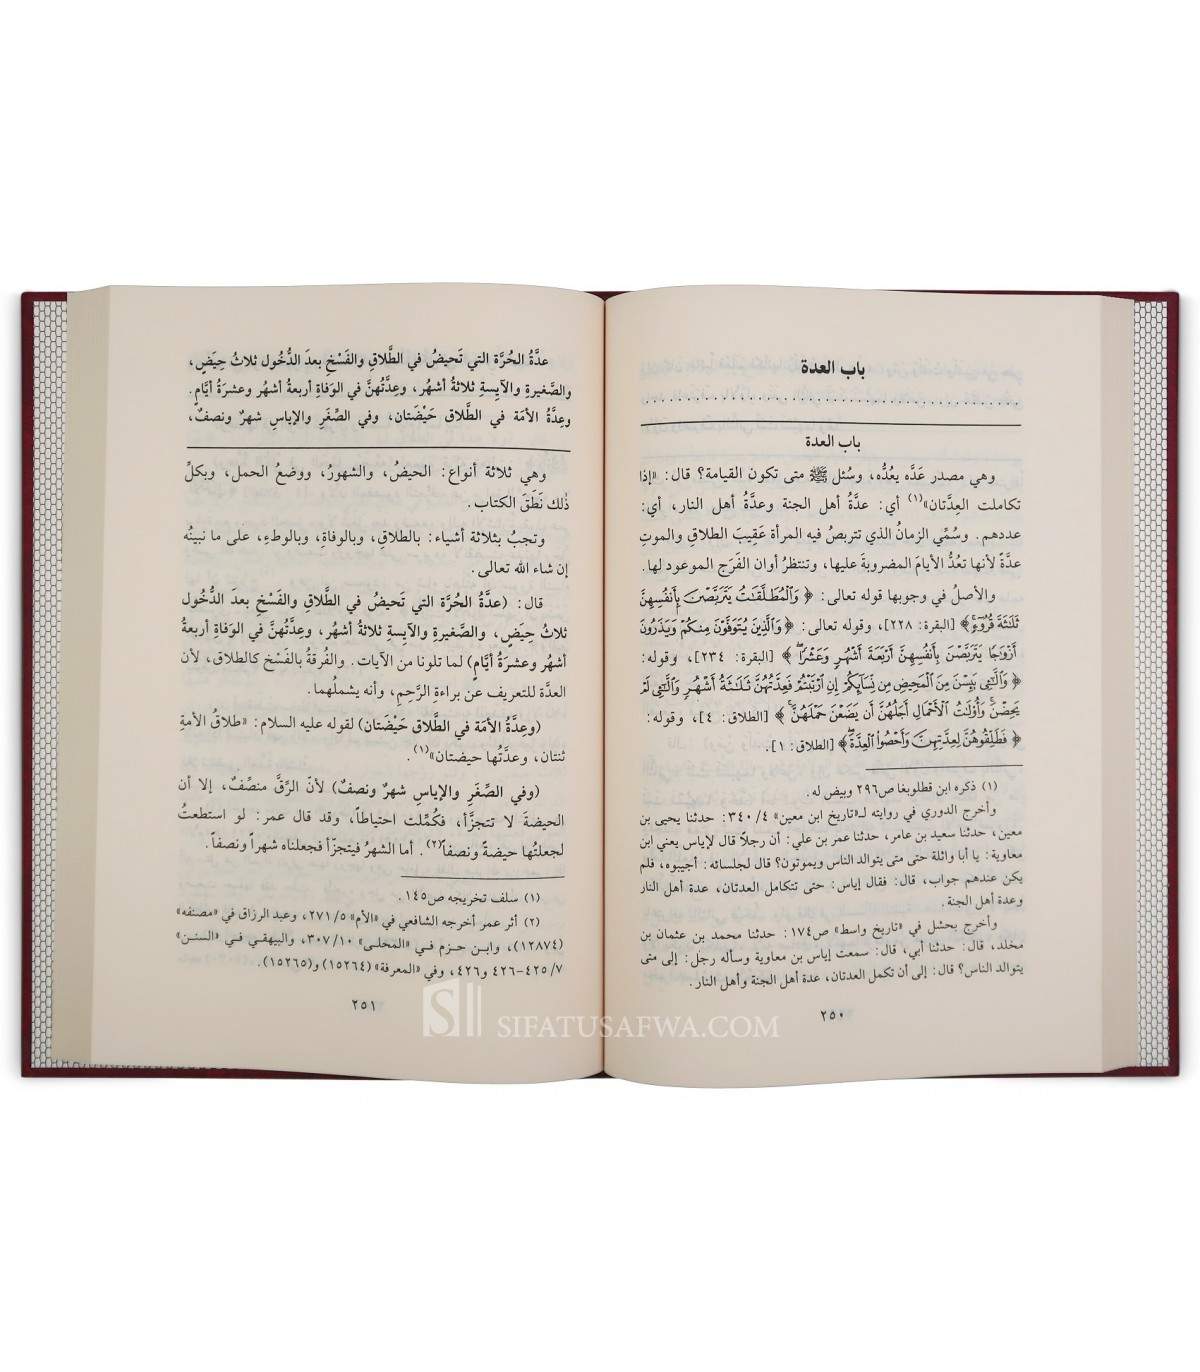 باب العدة
باب العدة
وهي مصدر عَدَّه يعُدُّه، وسُئل ﷺ متى تكون القيامة؟ قال: «إذا
تكاملت العِدَّتان»(١) أي: عدَّةُ أهل الجنة وعدَّةُ أهل النار، أي:
عددهم. وسُمِّي الزمانُ الذي تتربص فيه المرأة عَقِيبَ الطلاقِ والموتِ
عدَّةً لأنها تعُدُّ الأيامَ المضروبةَ عليها، وتنتظرُ أوان الفَرَجِ الموعود لها.
والأصلُ في وجوبها قوله تعالى: ﴿وَٱلْمُطَلَّقَٰتُ يَتَرَبَّصْنَ بِأَنفُسِهِنَّ
ثَلَٰثَةَ قُرُوٓءٍ﴾ [البقرة: ٢٢٨]، وقوله تعالى: ﴿وَٱلَّذِينَ يُتَوَفَّوْنَ مِنكُمْ وَيَذَرُونَ
أَزْوَٰجًا يَتَرَبَّصْنَ بِأَنفُسِهِنَّ أَرْبَعَةَ أَشْهُرٍ وَعَشْرًا﴾ [البقرة: ٢٣٤]، وقوله:
﴿وَٱلَّٰٓـِٔى يَئِسْنَ مِنَ ٱلْمَحِيضِ مِن نِّسَآئِكُمْ إِنِ ٱرْتَبْتُمْ فَعِدَّتُهُنَّ ثَلَٰثَةُ أَشْهُرٍ وَٱلَّٰٓـِٔى لَمْ
يَحِضْنَ وَأُو۟لَٰتُ ٱلْأَحْمَالِ أَجَلُهُنَّ أَن يَضَعْنَ حَمْلَهُنَّ﴾ [الطلاق: ٤]، وقوله:
﴿فَطَلِّقُوهُنَّ لِعِدَّتِهِنَّ وَأَحْصُوا۟ ٱلْعِدَّةَ﴾ [الطلاق: ١].
(١) ذكره ابن قطلوبغا ص٢٩٦ وبيض له.
وأخرج الدوري في روايته لـ«تاريخ ابن معين» ٣٤٠/٤: حدثنا يحيى بن
معين، حدثنا سعيد بن عامر، حدثنا عمر بن علي: أن رجلاً قال لإياس يعني ابن
معاوية: يا أبا واثلة حتى متى يتوالد الناس ويموتون؟ قال لجلسائه: أجيبوه، فلم
يكن عندهم جواب، قال: فقال إياس: حتى تتكامل العدتان، عدة أهل النار
وعدة أهل الجنة.
وأخرج بحشل في «تاريخ واسط» ص١٧٤: حدثنا محمد بن عثمان بن
مخلد، قال: حدثنا أبي، قال: سمعت إياس بن معاوية وسأله رجل: إلى متى
يتوالد الناس؟ قال: إلى أن تكمل العدتان، عدة أهل الجنة وأهل النار.
٢٥٠
عدَّةُ الحُرَّة التي تَحيضُ في الطَّلاقِ والفَسْخِ بعدَ الدُّخُول ثلاثُ حِيَضٍ،
والصَّغيرةِ والآيِسةِ ثلاثةُ أشهُر، وعِدَّتُهنَّ في الوَفاةِ أربعةُ أشهُر وعشرَةُ أيَّامٍ.
وعِدَّةُ الأمَة في الطَّلاق حَيْضَتان، وفي الصِّغَرِ والإياسِ شهرٌ ونصفٌ،
وهي ثلاثة أنواع: الحيضُ، والشهورُ، ووضعُ الحمل، وبكلِّ
ذٰلك نَطَقَ الكتاب.
وتجبُ بثلاثة أشياء: بالطلاقِ، وبالوفاةِ، وبالوطءِ، على ما نبينُه
إن شاء الله تعالى.
قال: (عدَّةُ الحُرَّة التي تَحيضُ في الطَّلاقِ والفَسْخِ بعدَ الدُّخُول
ثلاثُ حِيَضٍ، والصَّغيرةِ والآيِسةِ ثلاثةُ أشهُر، وعِدَّتُهنَّ في الوَفاةِ أربعةُ
أشهُر وعشرَةُ أيَّامٍ) لما تلونا من الآيات. والفُرقةُ بالفَسْخِ كالطلاق، لأن
العدَّة للتعريف عن براءةِ الرَّحِمِ، وأنه يشملُهما.
(وعِدَّةُ الأمَة في الطَّلاق حَيْضَتان) لقوله عليه السلام: «طلاقُ الأمةِ
ثنتان، وعدَّتُها حيضتان»(١).
(وفي الصِّغَرِ والإياسِ شهرٌ ونصفٌ) لأنّ الرِّقَّ منصِّفٌ، إلا أن
الحيضةَ لا تتجزَّأ، فكُمِّلت احتياطاً، وقد قال عمر: لو استطعتُ
لجعلتُها حيضةً ونصفاً(٢). أما الشهرُ فيتجزّأ فجعلناه شهراً ونصفاً.
(١) سلف تخريجه ص١٤٥.
(٢) أثر عمر أخرجه الشافعي في «الأم» ٢٧١/٥، وعبد الرزاق في «مصنفه»
(١٢٨٧٤)، وابن حزم في «المحلى» ٣٠٧/١٠، والبيهقي في «السنن»
٤٢٥/٧-٤٢٦ و٤٢٦، وفي «المعرفة» (١٥٢٦٤) و(١٥٢٦٥).
٢٥١
SIFATUSAFWA.COM